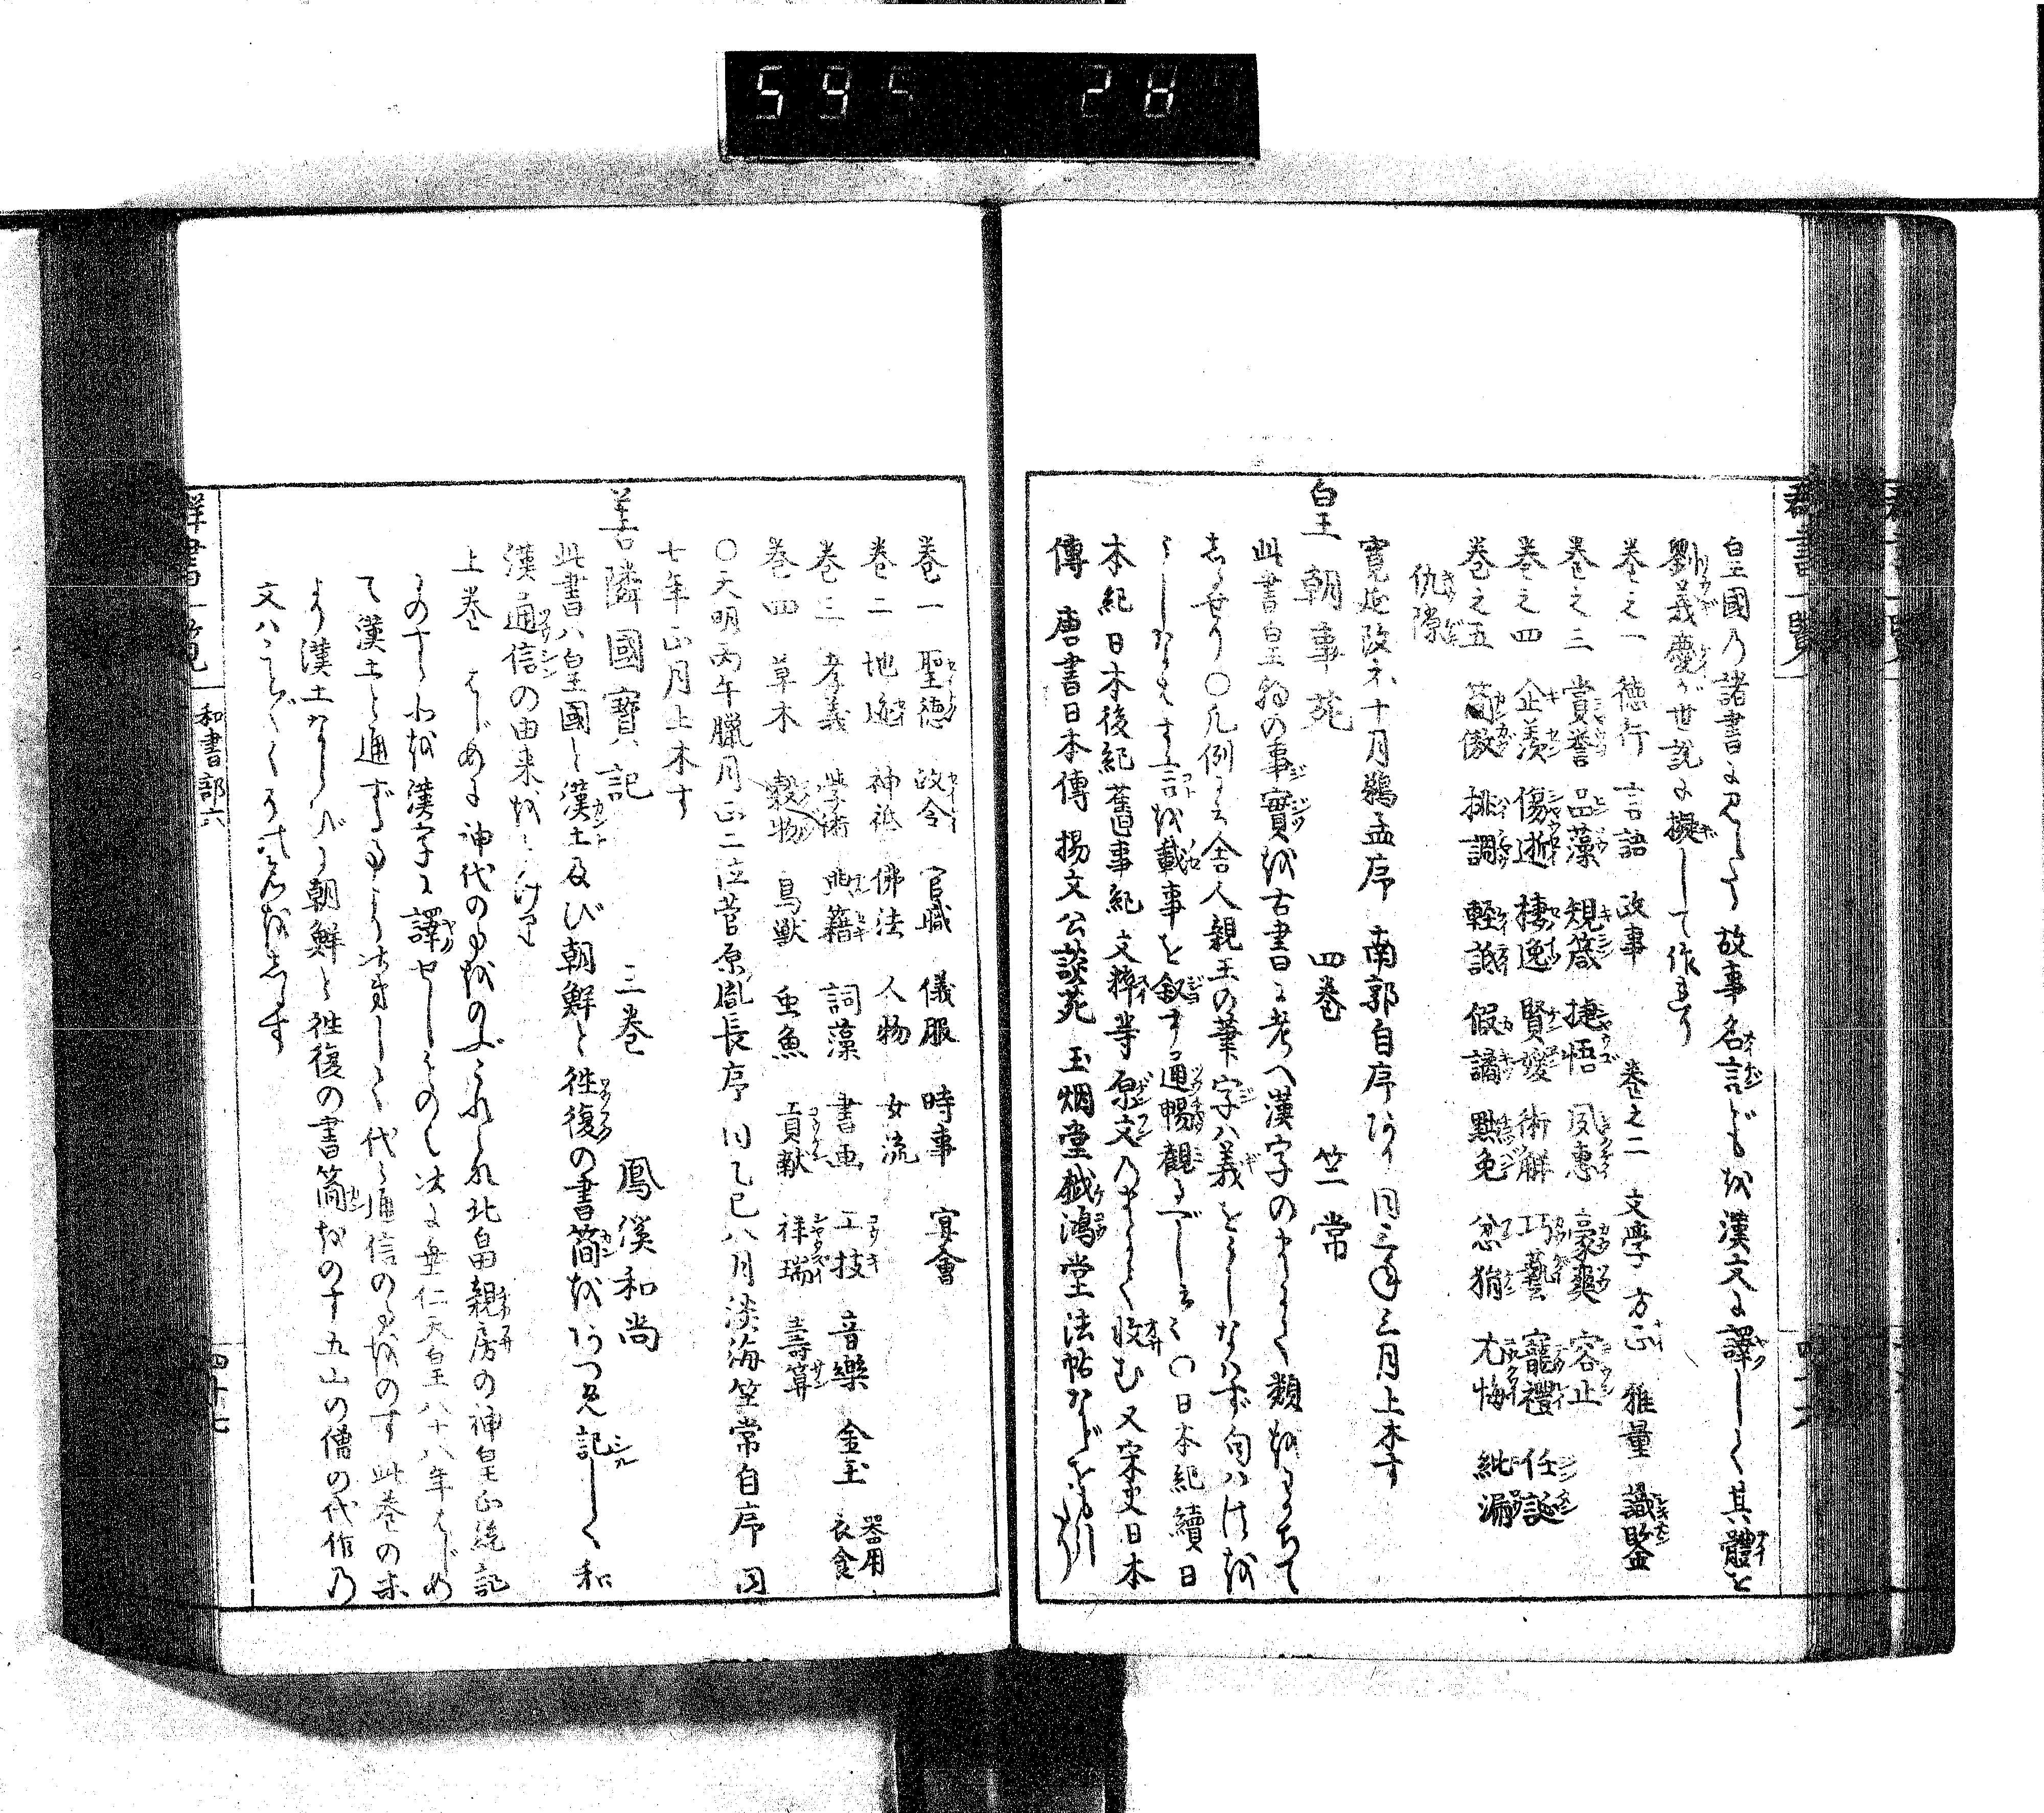 595 28
群書一覧
皇國の諸書に見えたる故事名言どもを漢文に譯して其體を
劉義慶が世説に擬して作れり
巻之一 徳行 言語 政事 巻之二 文學 方正 雅量 識鑒
巻之三 賞誉 品藻 規箴 捷悟 夙惠 豪爽 容止
巻之四 企羨 傷逝 棲逸 賢媛 術解 巧藝 寵禮 任誕
巻之五 簡傲 排調 軽詆 假譎 黜免 忿狷 尤悔 紕漏
仇隙
寛延改元十月鵜孟序 南郭自序あり 同三年三月上木す
皇朝事苑 四巻 竺常
此書皇朝の事實を古書に考へ漢字のまゝ類をわかちて
しるせり〇凡例に云舎人親王の筆字ハ義をうしなハず句ハ法を
うしなハず言を載事を叙す通暢観るべしと云々〇日本紀續日
本紀日本後紀舊事紀文粋等原文のまゝ收む又宋史日本
傳 唐書日本傳 楊文公談苑 玉烟堂戯鴻堂法帖などをも引り
四十六
巻一 聖徳 政令 官職 儀服 時事 宴會
巻二 地迹 神祇 佛法 人物 女流
巻三 孝義 學術 典籍 詞藻 書画 工技 音樂 金玉 器用 衣食
巻四 草木 穀物 鳥獣 虫魚 貢献 祥瑞 壽算
〇天明丙午臘月正二位菅原胤長序 同乙巳八月淡海竺常自序 同
七年正月上木す
善隣國寶記 三巻 鳳溪和尚
此書ハ皇國と漢土及び朝鮮と徃復の書簡をあつめ記して和
漢通信の由来を
上巻 はじめに神代の事をのぶこれハ北畠親房の神皇正統記
を漢字に譯せしものなり次に垂仁天皇八十八年はじめ
て漢土と通ずる事より次第して代々通信の事をのす此巻の末
より漢土ならびに朝鮮と徃復の書簡をのす五山の僧の代作の
文ハことごとく其名をしるす
群書一覧 和書部六 四十七